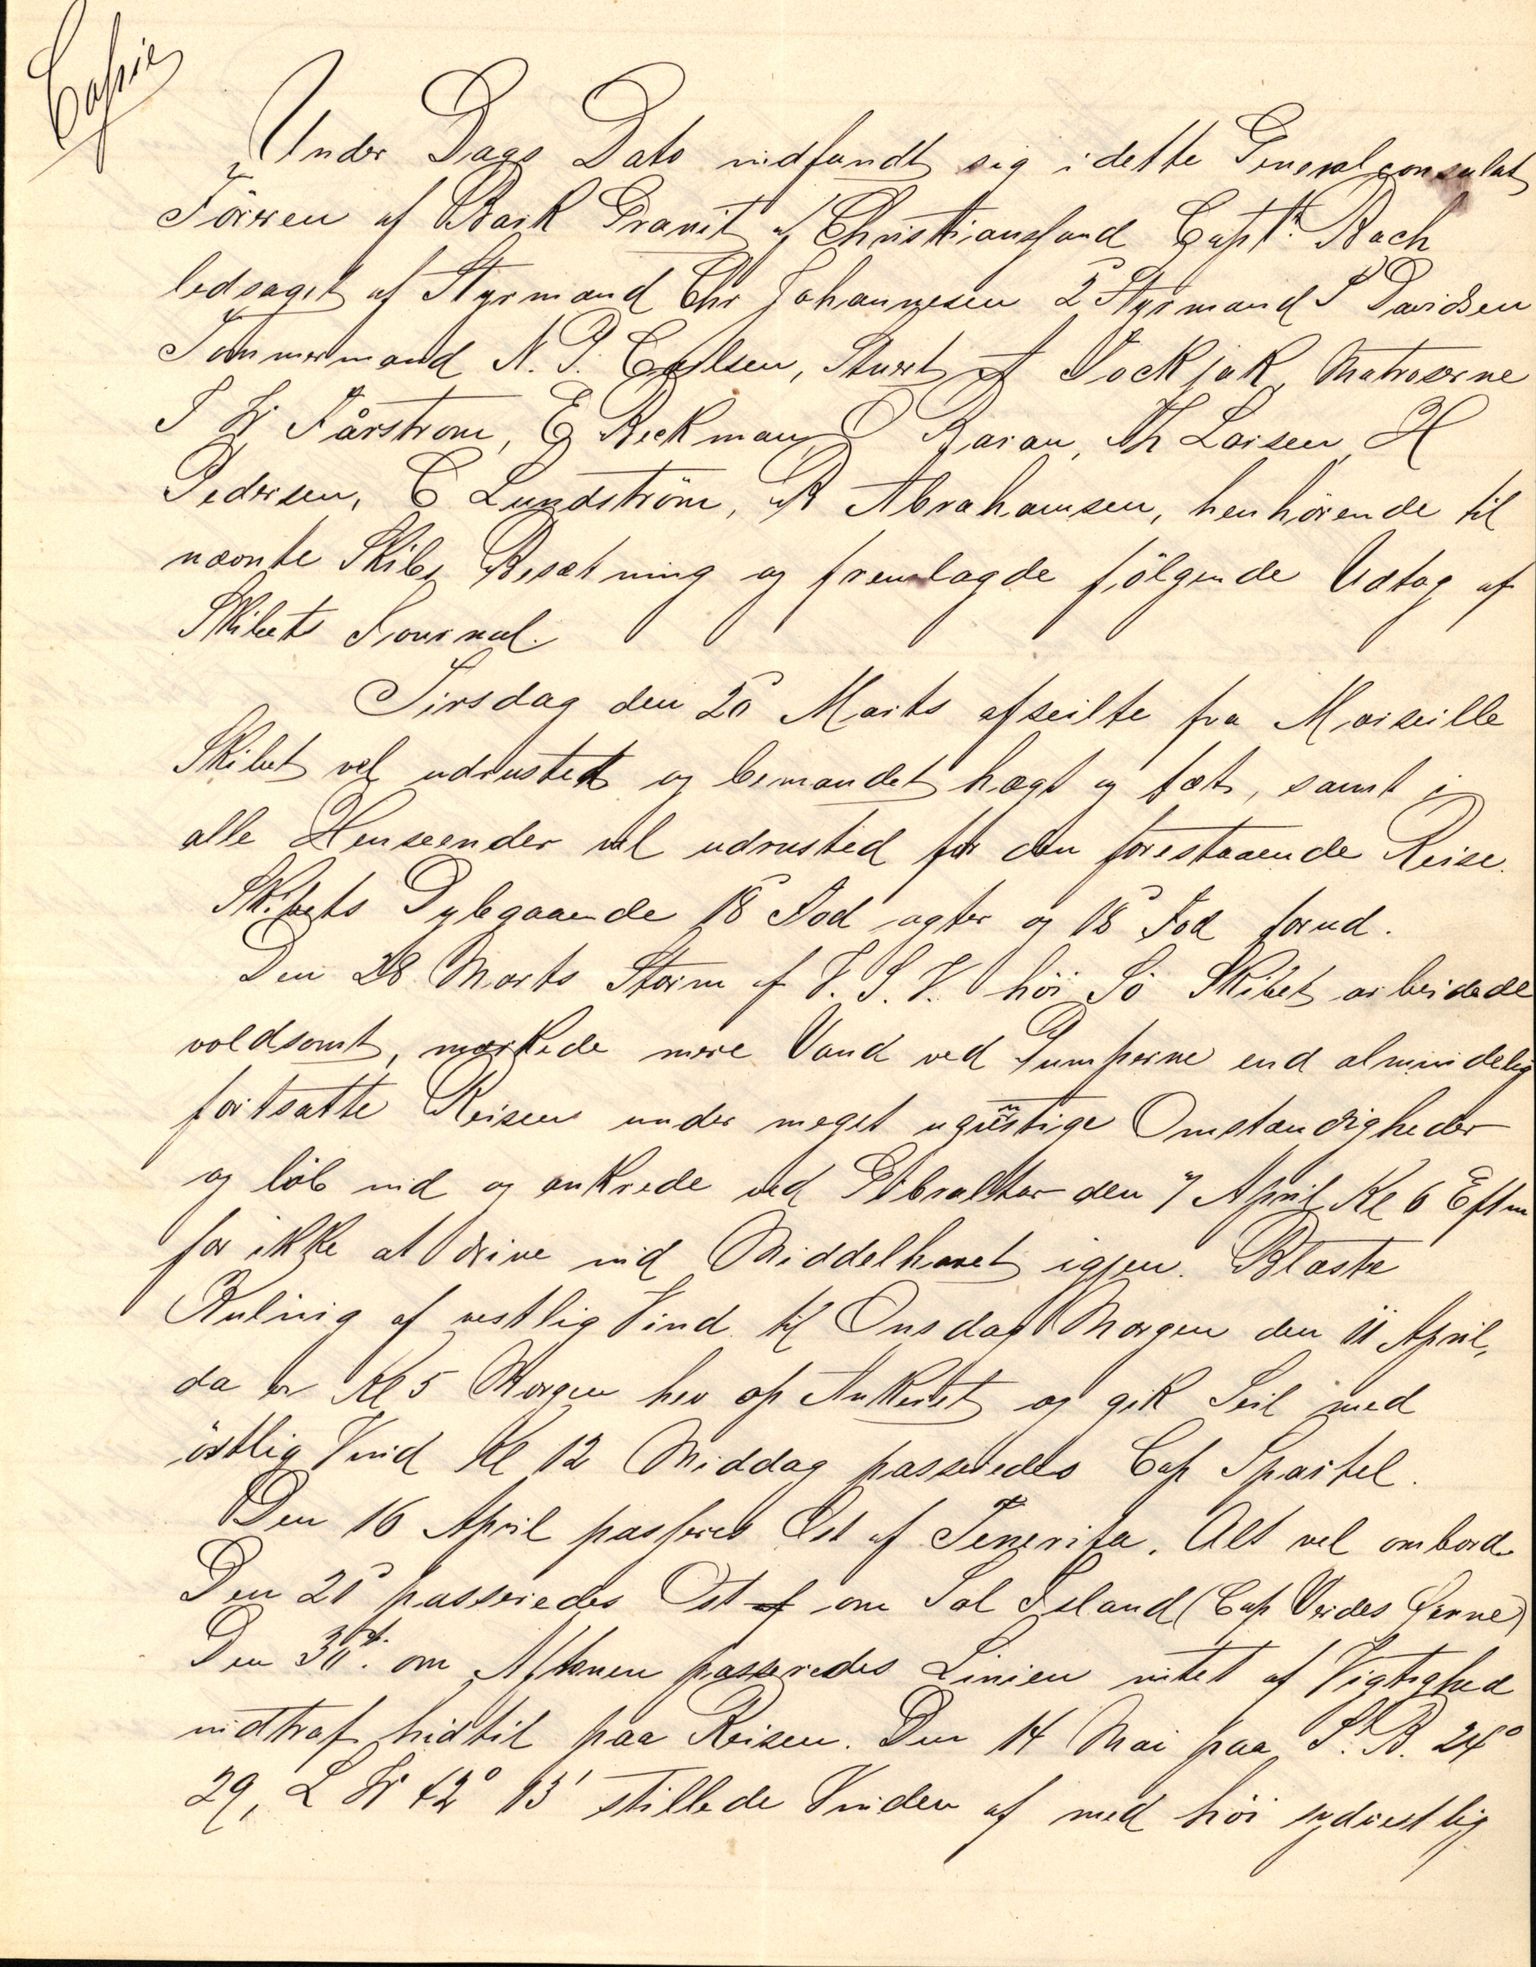 Copie
Under Dags Dato indfandt sig i dette Generalconsulat
Föreren af Bark Granit af Christianssand Captn. Bach
ledsaget af Styrmand Chr Johannesen 2 Styrmand S Davidsen
Tömmermand N. P. Carlsen, Stuert A Jockjak, Matroserne
J W Fårström, E Beckman, Baran, Th Larsen H
Pedersen, C Lundström, R Abrahamsen, henhörende til
nævnte Skibs Besætning og fremlagde fölgende Udtog af
Skibets Journal.
Tirsdag den 20 Marts afseilte fra Marseille
Skibet vel udrustet og bemandet lægt og tæt, samt i
alle Henseender vel udrusted for den forestaaende Reise.
Skibets Dybgaaende 18 Fod agter og 18 Fod forud.
Den 28 Marts Storm af V. S. V. höi Sö Skibet arbeidede
voldsomt, mærkede mere Vand ved Pumperne end almindelig
fortsatte Reisen under meget ugunstige Omstændigheder
og löb ind og ankrede ved Gibraltar den 7 April Kl 6 Eftm
for ikke at drive ind Middelhavet igjen. Blæste
Kuling af vestlig Vind til Onsdag Morgen den 11 April,
da vi Kl 5 Morgen hev op Ankeret og gik Seil med
östlig Vind Kl 12 Middag passeredes Cap Spartel.
Den 16 April passeret Öst af Tenerifa. Alt vel ombord
Den 20 passeredes Öst af om Sal Island (Cap Verdes Öerne)
Den 30 om Aftenen passeredes Linien intet af Vigtighed
indtraf hidtil paa Reisen. Den 14 Mai paa S. B. 24°
29, L W 42° 13' stillede Vinden af med höi sydvestlig